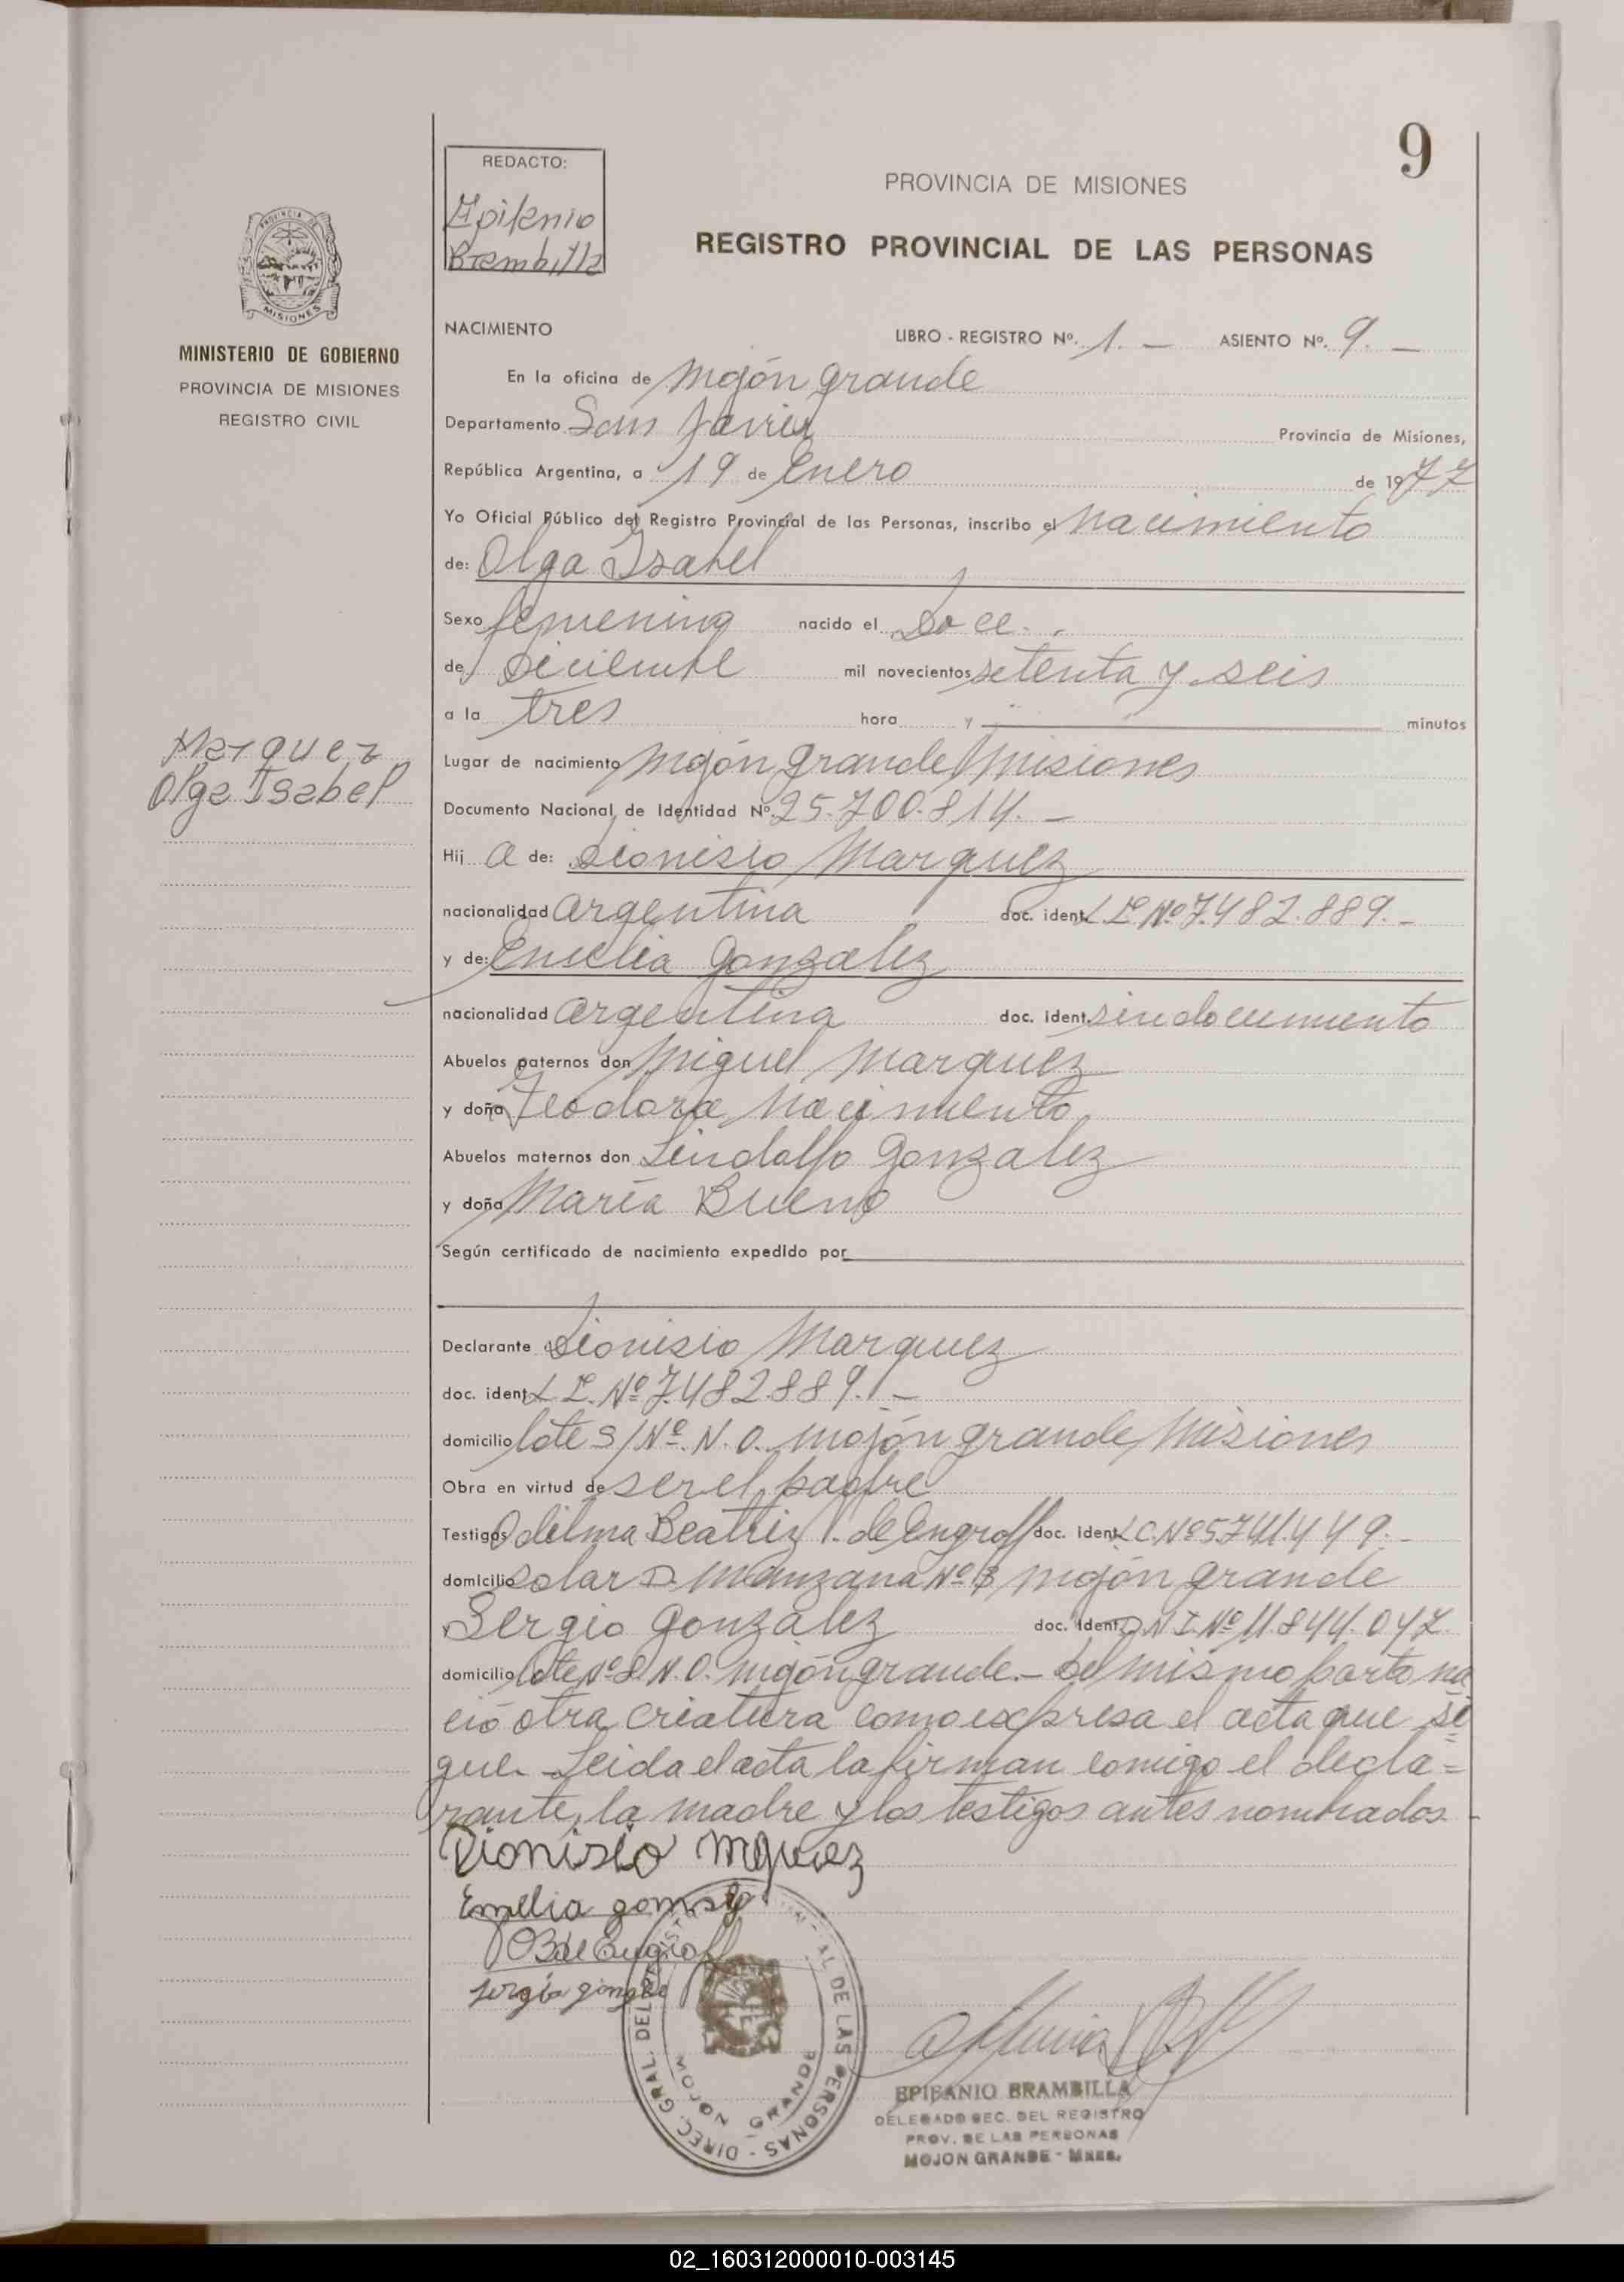 9
REDACTO:
Epifanio
Brambilla
PROVINCIA DE MISIONES
REGISTRO PROVINCIAL DE LAS PERSONAS
PROVINCIA DE
MISIONES
MINISTERIO DE GOBIERNO
PROVINCIA DE MISIONES
REGISTRO CIVIL
NACIMIENTO LIBRO - REGISTRO Nº. 1. — ASIENTO Nº. 9. —
En la oficina de Mojón grande
Departamento San Javier Provincia de Misiones,
República Argentina, a 19 de Enero de 1977
Yo Oficial Público del Registro Provincial de las Personas, inscribo el Nacimiento
de: Olga Isabel
Sexo femenino nacido el Doce.
de Diciembre mil novecientos setenta y seis
a la tres hora y minutos
Marquez
Olga Isabel
Lugar de nacimiento Mojón grande Misiones
Documento Nacional de Identidad Nº. 25.700.814. —
Hij a de: Dionisio Marquez
nacionalidad argentina doc. ident. L.E. Nº 7.482.889. -
y de: Emelia Gonzalez
nacionalidad argentina doc. ident. sin documento
Abuelos paternos don Miguel Marquez
y doña Teodora Nacimiento
Abuelos maternos don Lindolfo Gonzalez
y doña María Bueno
Según certificado de nacimiento expedido por
Declarante Dionisio Marquez
doc. ident. L.E. Nº 7.482.889. —
domicilio lote S/Nº. N.O. Mojón grande, Misiones
Obra en virtud de ser el padre
Testigos Odilma Beatriz V. de Engroff doc. Ident. L.C. Nº 5.741.449. -
domicilio solar D. manzana Nº 8 Mojón grande
Sergio Gonzalez doc. Ident. D.N.I. Nº 11.844.047.
domicilio lote Nº 8 N.O. Mojón grande. — Del mismo parto na
ció otra criatura como expresa el acta que si
gue. — Leida el acta la firman comigo el decla=
rante, la madre y los testigos antes nombrados. -
Dionisio Mquez
Emelia
OB de Engroff
Sergio
DIREC. GRAL. DEL DE LAS PERSONAS -
MOJON GRANDE
EPIFANIO BRAMBILLA
DELEGADO SEC. DEL REGISTRO
PROV. DE LAS PERSONAS
MOJON GRANDE - Mnes.
02_160312000010-003145